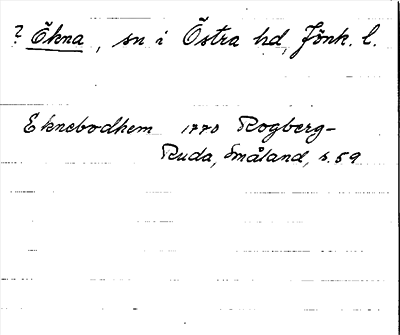 ? Ökna, sn i Östra hd, Jönk. l.
Eknebodhem 1770 Rogberg-
Ruda, Småland, s. 59